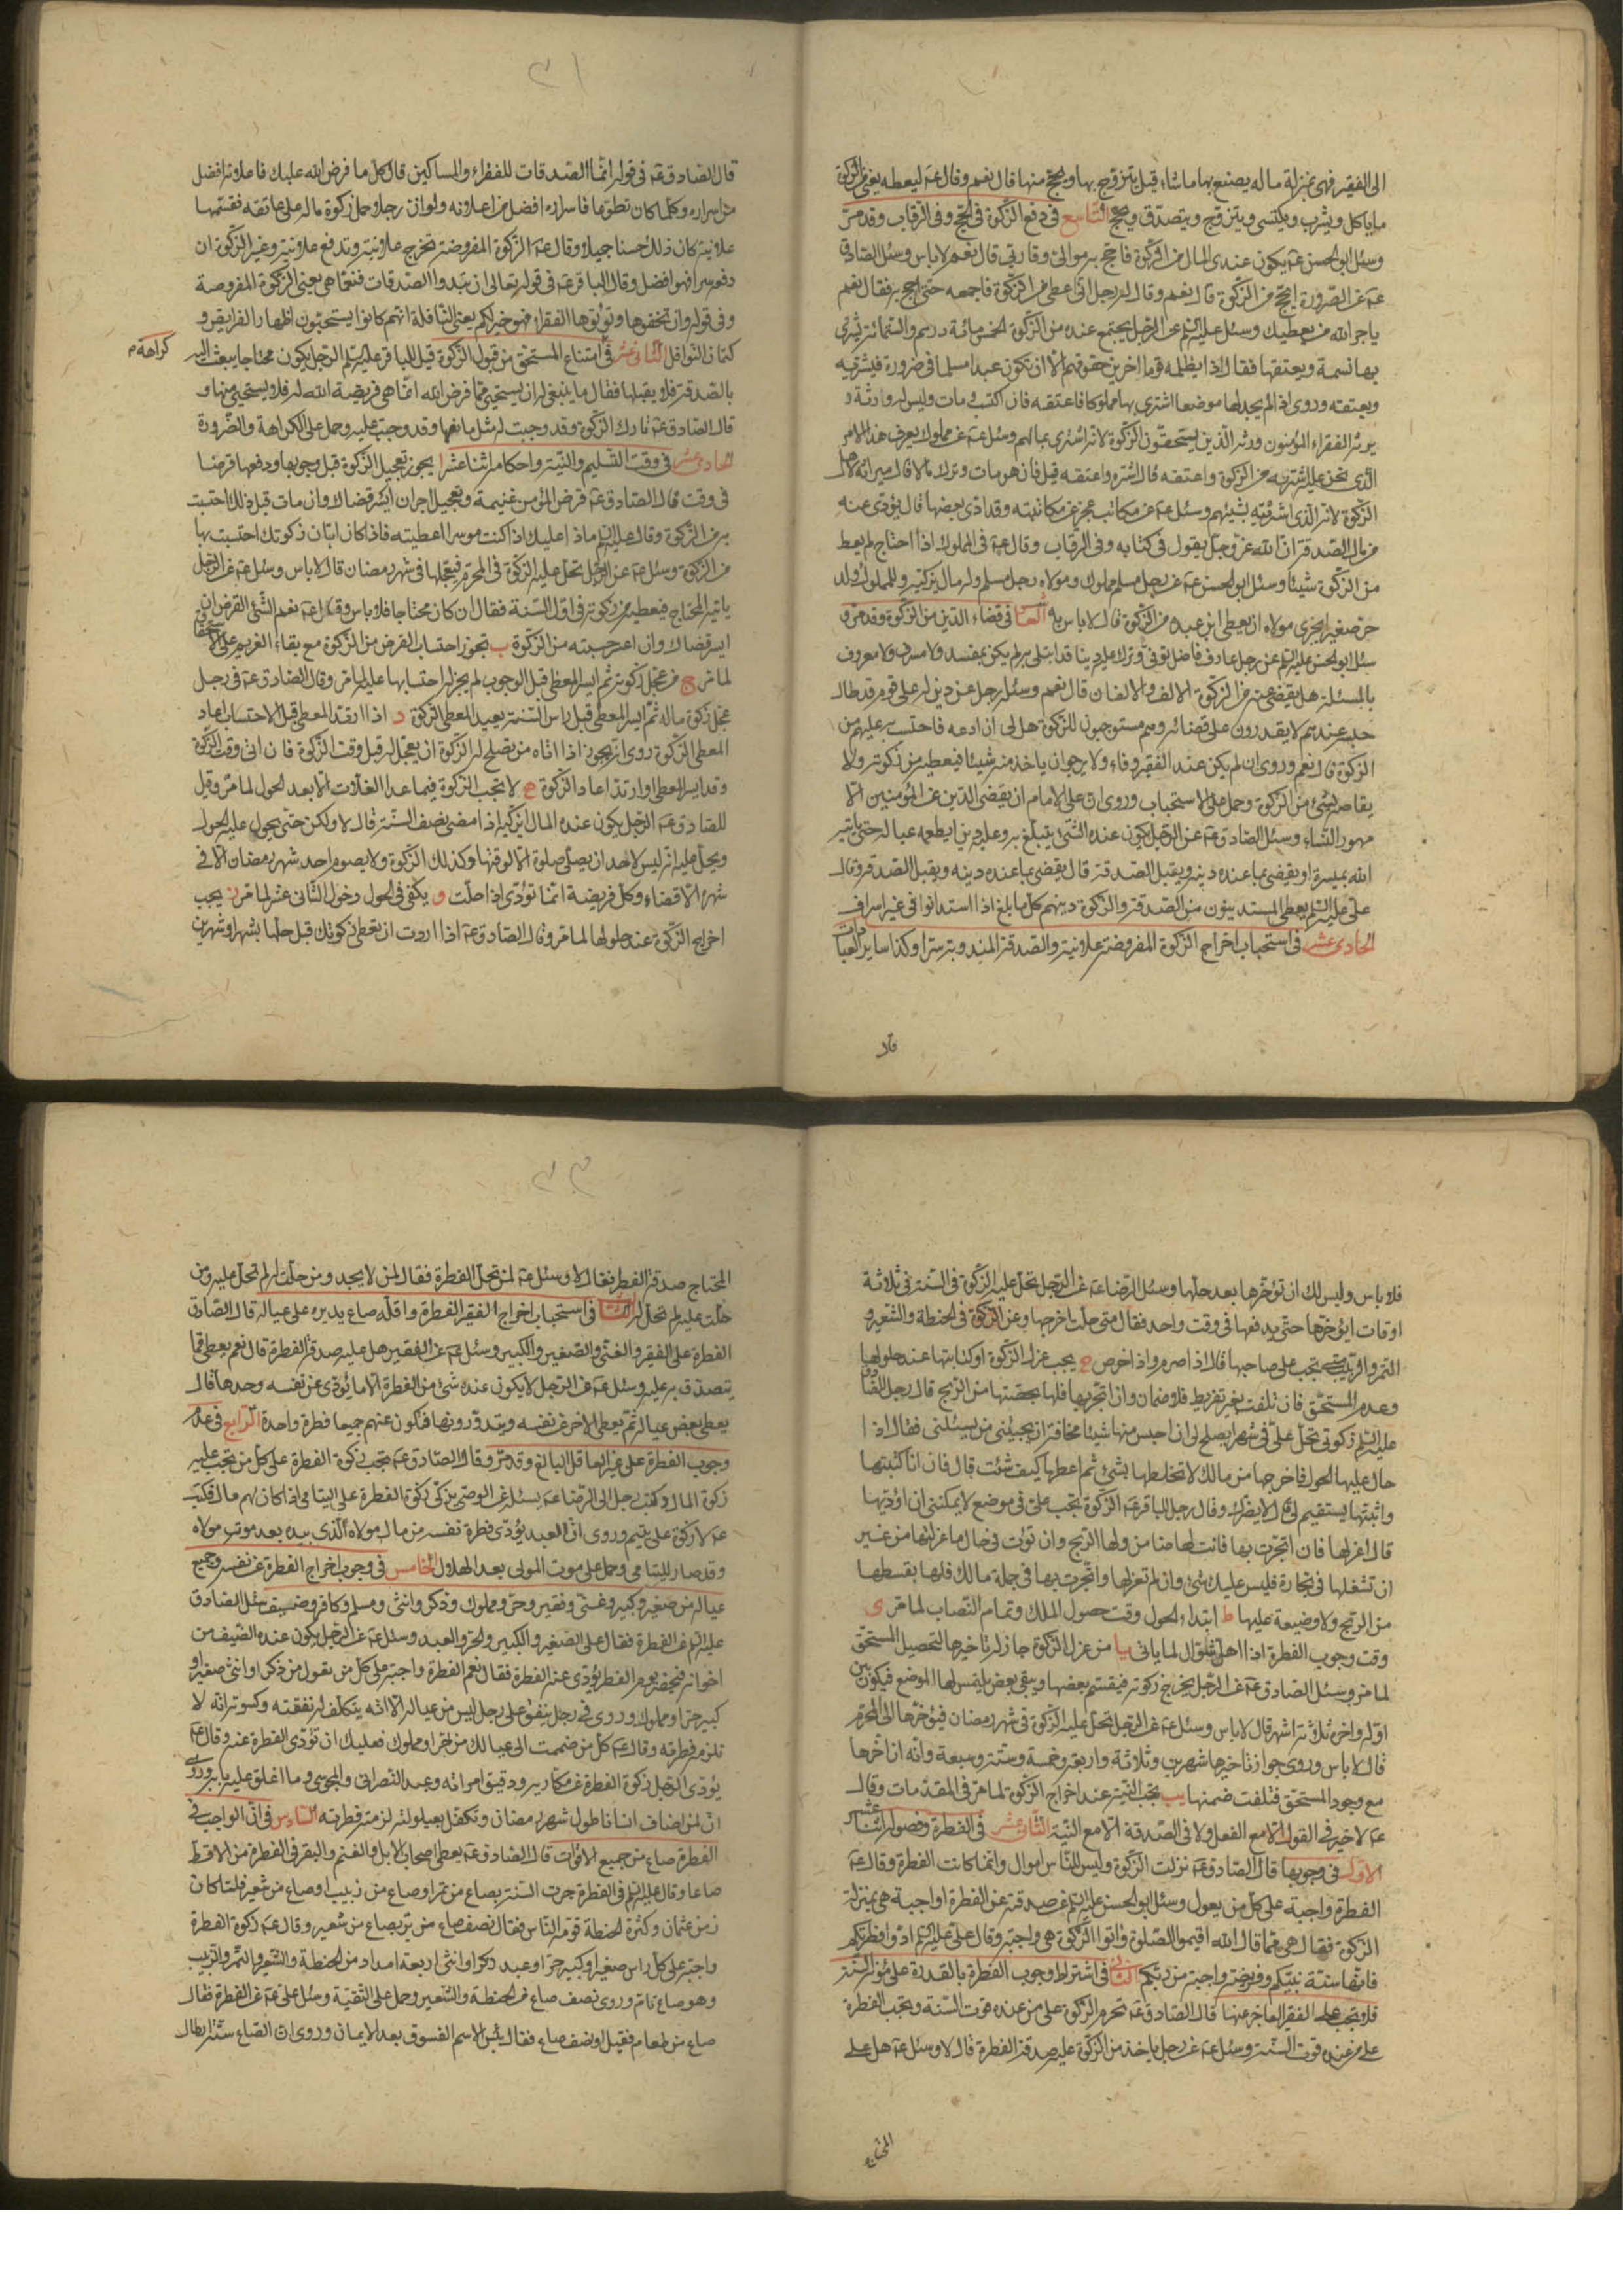 الى الفقير فهى بمنزلة ماله يصنع بها ما شاء قيل يتزوج بها ويحج منها قال نعم وقال عه ليعطه يعنى من الزكوة
ما ياكل ويشرب ويكتسى ويتزوج ويتصدق ويحج التاسع فى دفع الزكوة فى الحج وفى الرقاب وقد مر
وسئل ابو الحسن عه يكون عندى المال من الزكوة فاحج به موالى واقاربى قال نعم لا باس وسئل الصادق
عه عن الصرورة ايحج من الزكوة قال نعم وقال له رجل انى اعطى من الزكوة فاجمعه حتى احج به فقال نعم
ياجر الله من يعطيك وسئل عليه السلم عن الرجل يجتمع عنده من الزكوة الخمس مائة درهم والستمائة يشترى
بها نسمة ويعتقها فقال اذا يظلم قوما اخرين حقوقهم الا ان تكون عبدا مسلما فى ضرورة فيشتريه
ويعتقه وروى اذا لم يجد لها موضعا اشترى بها مملوكا فاعتقه فان اكتسب ومات وليس له وارث و
يرثه الفقراء المؤمنون ورثه الذين يستحقون الزكوة لانه اشترى بمالهم وسئل عه عن مملوك يعرف هذا الامر
الذى نحن عليه اشتريه من الزكوة واعتقه قال اشتره واعتقه قيل فان هو مات وترك مالا قال ميراثه لاهل
الزكوة لانه الذى اشترى بشيئهم وسئل عه عن مكاتب عجز عن مكاتبته وقد ادى بعضها قال يؤدى عنه
من مال الصدقة ان الله عز وجل يقول فى كتابه وفى الرقاب وقال عه فى المملوك اذا احتاج لم يعط
من الزكوة شيئا وسئل ابو الحسن عه عن رجل مسلم مملوك ومولاه رجل مسلم وله مال يزكيه وللمملوك ولد
حر صغير ايجزى مولاه ان يعطى ابن عبده من الزكوة قال لا باس به العاشر فى قضاء الدين من الزكوة وقد مر و
سئل ابو الحسن عليه السلم عن رجل عارف فاضل توفى وترك عليه دينا قد ابتلى به لم يكن بمفسد ولا مسرف ولا معروف
بالمسئلة هل يقضى عنه من الزكوة الالف والالفان قال نعم وسئل رجل عن دين له على قوم قد طال
حبسه عندهم لا يقدرون على قضائه وهم مستوجبون للزكوة هل لى ان ادعه فاحتسب به عليهم من
الزكوة قال نعم وروى ان لم يكن عند الفقير وفاء ولا يرجو ان ياخذ منه شيئا فيعطيه من زكوته ولا
يقاصه بشئ من الزكوة وحمل على الاستحباب وروى ان على الامام ان يقضى الدين عن المؤمنين الا
مهور النساء وسئل الصادق عه عن الرجل يكون عنده الشئ يتبلغ به وعليه دين ايطعمه عياله حتى ياتيه
الله بميسرة او يقضى بما عنده دينه ويقبل الصدقة قال يقضى بما عنده دينه ويقبل الصدقة وقال
على عليه السلم يعطى المستدينون من الصدقة والزكوة دينهم كل ما بلغ اذا استدانوا فى غير اسراف
الحادى عشر فى استحباب اخراج الزكوة المفروضة علانية والصدقة المندوبة سرا وكذا ساير العبادات
قال
قال الصادق عه فى قوله انما الصدقات للفقراء والمساكين قال كل ما فرض الله عليك فاعلانه افضل
من اسراره وكلما كان تطوعا فاسراره افضل من اعلانه ولو ان رجلا حمل زكوة ماله على عاتقه فقسمها
علانية كان ذلك حسنا جميلا وقال عه الزكوة المفروضة تخرج علانية وتدفع علانية وغير الزكوة ان
دفعه سرا فهو افضل وقال الباقر عه فى قوله تعالى ان تبدوا الصدقات فنعما هى يعنى الزكوة المفروضة
وفى قوله وان تخفوها وتؤتوها الفقراء فهو خير لكم يعنى النافلة انهم كانوا يستحبون اظهار الفرايض و
كتمان النوافل الثانى عشر فى امتناع المستحق من قبول الزكوة قيل للباقر عليه السلم الرجل يكون محتاجا يبعث اليه
كراهة م
بالصدقة فلا يقبلها فقال ما ينبغى له ان يستحيى مما فرض الله انما هى فريضة الله له فلا يستحيى منها و
قال الصادق عه تارك الزكوة وقد وجبت له مثل مانعها وقد وجبت عليه وحمل على الكراهة والضرورة
الحادى عشر فى وقت التسليم والنية واحكامه اثنا عشر ا يجوز تعجيل الزكوة قبل وجوبها ودفعها قرضا
فى وقت قال الصادق عه قرض المؤمن غنيمة وتعجيل اجر ان ايسر قضاك وان مات قبل ذلك احتسبت
به من الزكوة وقال عليه السلم ماذا عليك اذا كنت موسرا اعطيته فاذا كان ابان زكوتك احتسبت بها
من الزكوة وسئل عه عن الرجل تحل عليه الزكوة فى المحرم فيعجلها فى شهر رمضان قال لا باس وسئل عه عن الرجل
ياتيه المحتاج فيعطيه من زكوته فى اول السنة فقال ان كان محتاجا فلا باس وقال عه نعم الشئ القرض ان
ايسر قضاك وان اعسر حسبته من الزكوة ب تجوز احتساب القرض من الزكوة مع بقاء الغريم على الاستحقاق
لما مر ج من عجل زكوته ثم ايسر المعطى قبل الوجوب لم يجز له احتسابها عليه لما مر وقال الصادق عه فى رجل
عجل زكوة ماله ثم ايسر المعطى قبل راس السنة يعيد المعطى الزكوة د اذا ارتد المعطى قبل الاحتساب اعاد
المعطى الزكوة روى انه يجوز اذا اتاه من يصلح له الزكوة ان يعجل له قبل وقت الزكوة فان اتى وقت الزكوة
وقد ايسر المعطى او ارتد اعاد الزكوة ه لا تجب الزكوة فيما عدا الغلات الا بعد الحول لما مر وقيل
للصادق عه الرجل يكون عنده المال ايزكيه اذا مضى نصف السنة قال لا ولكن حتى يحول عليه الحول
ويحل عليه انه ليس لاحد ان يصلى صلوة الا لوقتها وكذلك الزكوة ولا يصوم احد شهر رمضان الا فى
شهره الا قضاء وكل فريضة انما تؤدى اذا حلت و يكفى فى الحول دخول الثانى عشر لما مر ز يجب
اخراج الزكوة عند حلولها لما مر وقال الصادق عه اذا اردت ان تعطى زكوتك قبل حلها بشهر او شهرين
فلا باس وليس لك ان تؤخرها بعد حلها وسئل الرضا عه عن الرجل تحل عليه الزكوة فى السنة فى ثلاثة
اوقات ايؤخرها حتى يدفعها فى وقت واحد فقال متى حلت اخرجها وعن الزكوة فى الحنطة والشعير و
التمر والزبيب متى تجب على صاحبها قال اذا صرم واذا خرص ح يجب عزل الزكوة او كتابتها عند حلولها
وعدم المستحق فان تلفت بغير تفريط فلا ضمان وان اتجر بها فلها بحصتها من الربح قال رجل للصادق
عليه السلم زكوتى تحل على فى شهر ايصلح لى ان احبس منها شيئا مخافة ان يجيئنى من يسئلنى فقال اذا
حال عليها الحول فاخرجها من مالك لا تخلطها بشئ ثم اعطها كيف شئت قال فان انا كتبتها
واثبتها يستقيم لى قال لا يضرك وقال رجل للباقر عه الزكوة تجب على فى موضع لا يمكننى ان اؤديها
قال اعزلها فان اتجرت بها فانت لها ضامن ولها الربح وان تويت فى حال ما عزلتها من غير
ان تشغلها فى تجارة فليس عليك شئ وان لم تعزلها واتجرت بها فى جملة مالك فلها بقسطها
من الربح ولا وضيعة عليها ط ابتداء الحول وقت حصول الملك وتمام النصاب لما مر ى
وقت وجوب الفطرة اذا اهل شوال لما ياتى يا من عزل الزكوة جاز له تاخيرها لتحصيل المستحق
لما مر وسئل الصادق عه عن الرجل يخرج زكوته فيقسم بعضها ويبقى بعض يلتمس لها الموضع فيكون بين
اوله واخره ثلاثة اشهر قال لا باس وسئل عه عن الرجل تحل عليه الزكوة فى شهر رمضان فيؤخرها الى المحرم
قال لا باس وروى جواز تاخيرها شهرين وثلاثة واربعة وخمسة وستة وسبعة وانه ان اخرها
مع وجود المستحق فتلفت ضمنها يب تجب النية عند اخراج الزكوة لما مر فى المقدمات وقال
عه لا خير فى القول الا مع الفعل ولا فى الصدقة الا مع النية الثانى عشر فى الفطرة وفصوله اثنا عشر
الاول فى وجوبها قال الصادق عه نزلت الزكوة وليس للناس اموال وانما كانت الفطرة وقال عه
الفطرة واجبة على كل من يعول وسئل ابو الحسن عليه السلم عن صدقة عن الفطرة اواجبة هى بمنزلة
الزكوة فقال هى مما قال الله اقيموا الصلوة واتوا الزكوة هى واجبة وقال على عليه السلم ادوا فطرتكم
فانها سنة نبيكم وفريضة واجبة من ربكم الثانى فى اشتراط وجوب الفطرة بالقدرة على مؤنة السنة
فلا تجب على الفقير العاجز عنها قال الصادق عه تحرم الزكوة على من عنده قوت السنة وتجب الفطرة
على من عنده قوت السنة وسئل عه عن رجل ياخذ من الزكوة عليه صدقة الفطرة قال لا وسئل عه هل على
المحتاج
المحتاج صدقة الفطر فقال لا وسئل عه لمن تحل الفطرة فقال لمن لا يجد ومن حلت له لم تحل عليه ومن
حلت عليه لم تحل له الثالث فى استحباب اخراج الفقير الفطرة واقله صاع يديره على عياله قال الصادق
الفطرة على الفقير والغنى والصغير والكبير وسئل عه عن الفقير هل عليه صدقة الفطرة قال نعم يعطى مما
يتصدق به عليه وسئل عه عن الرجل لا يكون عنده شئ من الفطرة الا ما يؤدى عن نفسه وحدها قال
يعطى بعض عياله ثم يعطى الاخر عن نفسه ويترددونها فتكون عنهم جميعا فطرة واحدة الرابع فى عدم
وجوب الفطرة على غير العاقل البالغ وقد مر وقال الصادق عه تجب زكوة الفطرة على كل من تجب عليه
زكوة المال وكتب رجل الى الرضا عه يسئله عن الوصى يزكى زكوة الفطرة على اليتامى اذا كان لهم مال فكتب
عه لا زكوة على يتيم وروى ان العبد يؤدى فطرة نفسه من مال مولاه الذى بيده بعد موت مولاه
وقد صار لليتامى وحمل على موت المولى بعد الهلال الخامس فى وجوب اخراج الفطرة عن نفسه وجميع
عياله من صغير وكبير وغنى وفقير وحر ومملوك وذكر وانثى ومسلم وكافر وضيف سئل الصادق
عليه السلم عن الفطرة فقال على الصغير والكبير والحر والعبد وسئل عه عن الرجل يكون عنده الضيف من
اخوانه فيحضر يوم الفطر يؤدى عنه الفطرة فقال نعم الفطرة واجبة على كل من يعول من ذكر او انثى صغير او
كبير حر او مملوك وروى فى رجل ينفق على رجل ليس من عياله الا انه يتكلف له نفقته وكسوته انه لا
تلزمه فطرته وقال عه كل من ضممت الى عيالك من حر او مملوك فعليك ان تؤدى الفطرة عنه وقال عه
يؤدى الرجل زكوة الفطرة عن مكاتبه ورقيق امراته وعبده النصرانى والمجوسى وما اغلق عليه بابه وروى
ان من اضاف انسانا طول شهر رمضان وتكفل بعيلولته لزمته فطرته السادس فى ان الواجب فى
الفطرة صاع من جميع الاقوات قال الصادق عه يعطى اصحاب الابل والغنم والبقر فى الفطرة من الاقط
صاعا وقال عليه السلم فى الفطرة جرت السنة بصاع من تمر او صاع من زبيب او صاع من شعير فلما كان
زمن عثمان وكثرة الحنطة قومه الناس فقال نصف صاع من بر بصاع من شعير وقال عه زكوة الفطرة
واجبة على كل راس صغير او كبير حر او عبد ذكر او انثى اربعة امداد من الحنطة والشعير والتمر والزبيب
وهو صاع تام وروى نصف صاع من الحنطة والشعير وحمل على التقية وسئل على عه عن الفطرة فقال
صاع من طعام فقيل او نصف صاع فقال بئس الاسم الفسوق بعد الايمان وروى ان الصاع ستة ارطال